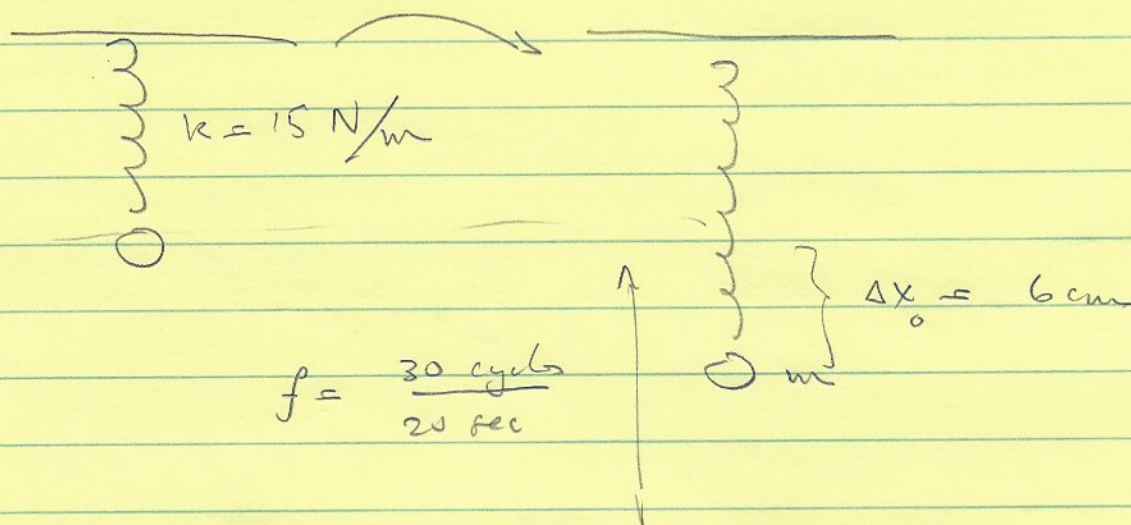 k = 15 N/m
Δx₀ = 6 cm
m
f = 30 cycles
20 sec